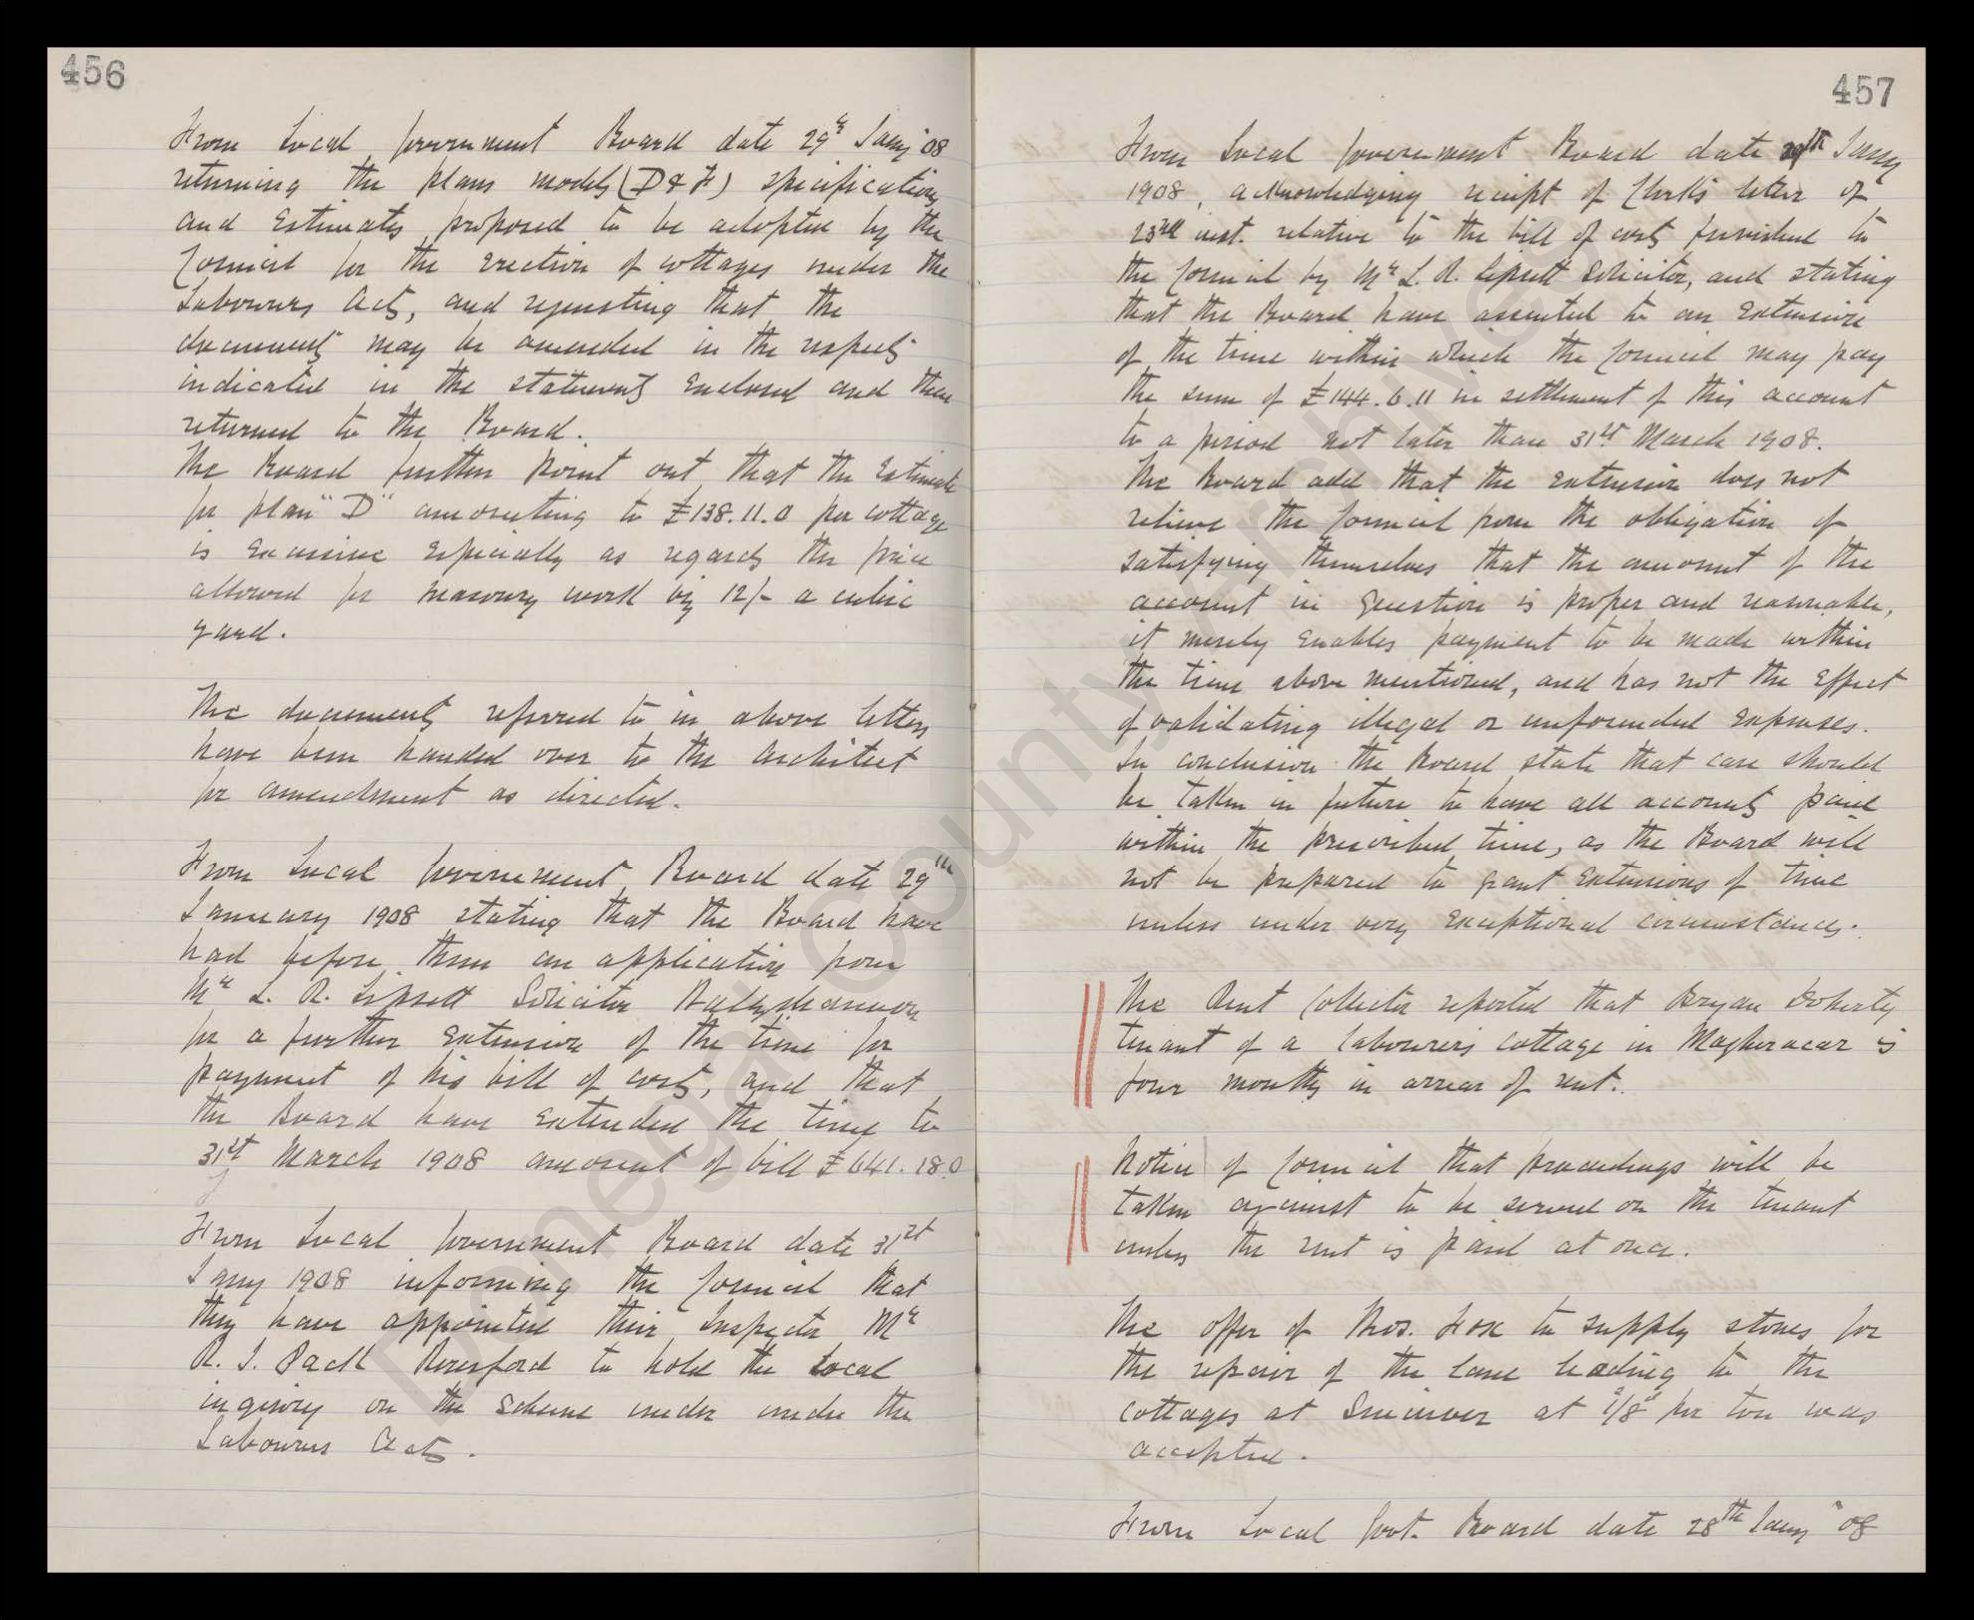 456
From Local Government Board date 29th Jany 08
returning the plans models (D & F) specification
and Estimates proposed to be adopted by the
Council for the erection of cottages under the
Labourers Acts, and requesting that the
documents may be amended in the respects
indicated in the statements Enclosed and then
returned to the Board.
The Board further point out that the Estimate
for plan "D" amounting to £138.11.0 per cottage
is Excessive Especially as regards the price
allowed for masonry work viz 12/- a cubic
yard.
The documents referred to in above letter
have been handed over to the Architect
for amendment as directed.
From Local Government Board date 29th
January 1908 stating that the Board have
had before them an application from
Mr L. R. Lipsett Solicitor Ballyshannon
for a further Extension of the time for
payment of his bill of costs, and that
the Board have Extended the time to
31st March 1908 amount of bill £641.18.0
From Local Government Board date 31st
Jany 1908 informing the Council that
they have appointed their Inspector Mr
R. J. Pack Beresford to hold the Local
inquiry on the Scheme under under the
Labourers Acts.
457
From Local Government Board date 29th Jany
1908, acknowledging receipt of Clerk's letter of
23rd inst. relative to the bill of costs furnished to
the Council by Mr L. R. Lipsett Solicitor, and stating
that the Board have assented to an Extension
of the time within which the Council may pay
the sum of £144.6.11 in settlement of this account
to a period not later than 31st March 1908.
The Board add that the Extension does not
relieve the Council from the obligation of
satisfying themselves that the amount of the
account in Question is proper and reasonable,
it merely Enables payment to be made within
the time above mentioned, and has not the Effect
of validating illegal or unfounded Expenses.
In conclusion the Board state that care should
be taken in future to have all accounts paid
within the prescribed time, as the Board will
not be prepared to grant Extensions of time
unless under very Exceptional circumstances.
The Rent Collector reported that Bryan Doherty
tenant of a labourers cottage in Magheracar is
four months in arrear of rent.
Notice of Council that proceedings will be
taken against to be served on the tenant
unless the rent is paid at once.
The offer of Thos. Fox to supply stones for
the repair of the lane leading to the
cottages at at 2/8d per ton was
accepted.
From Local Govt. Board date 28th Jany 08
Donegal County Archives